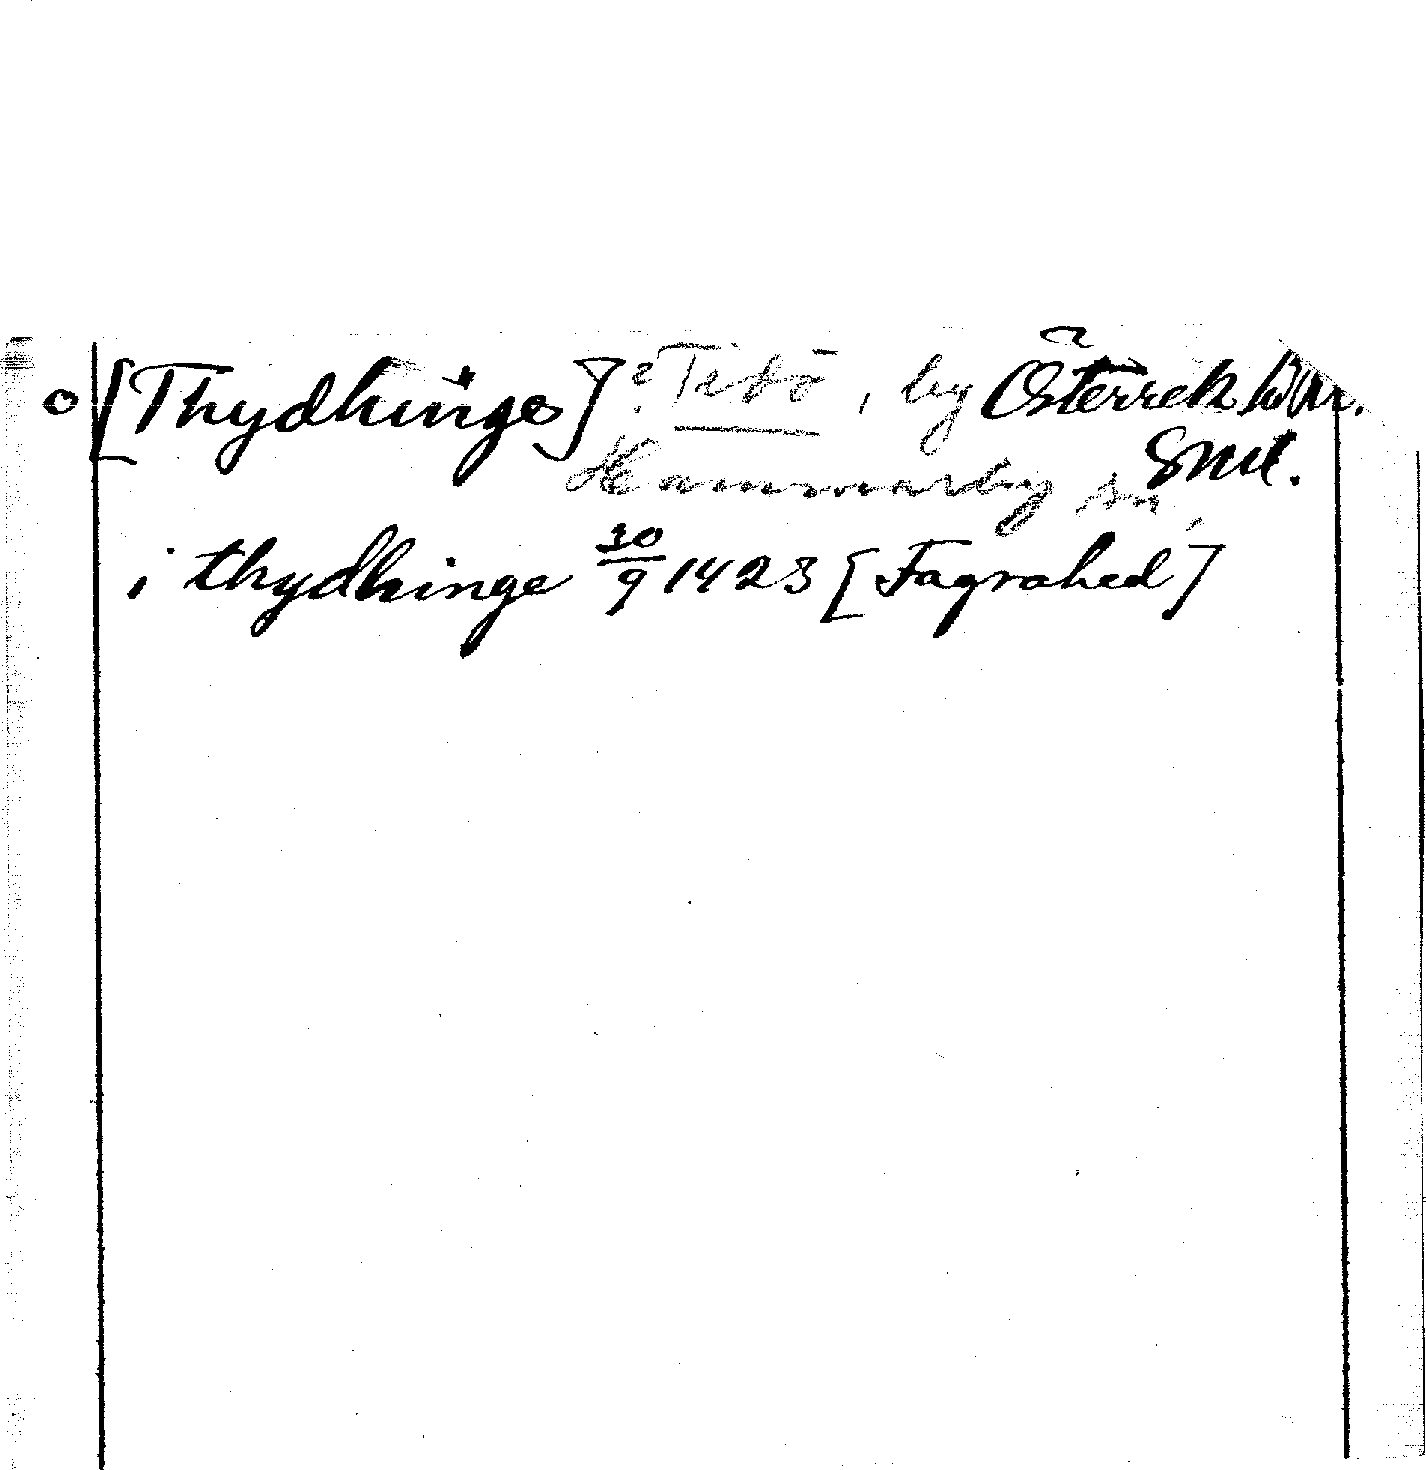 [Thydhinge] ? Titö, by Österrek hd.
Hammarby sn, Sml.
i thydhinge 30/9 1423 [Fagrahed]